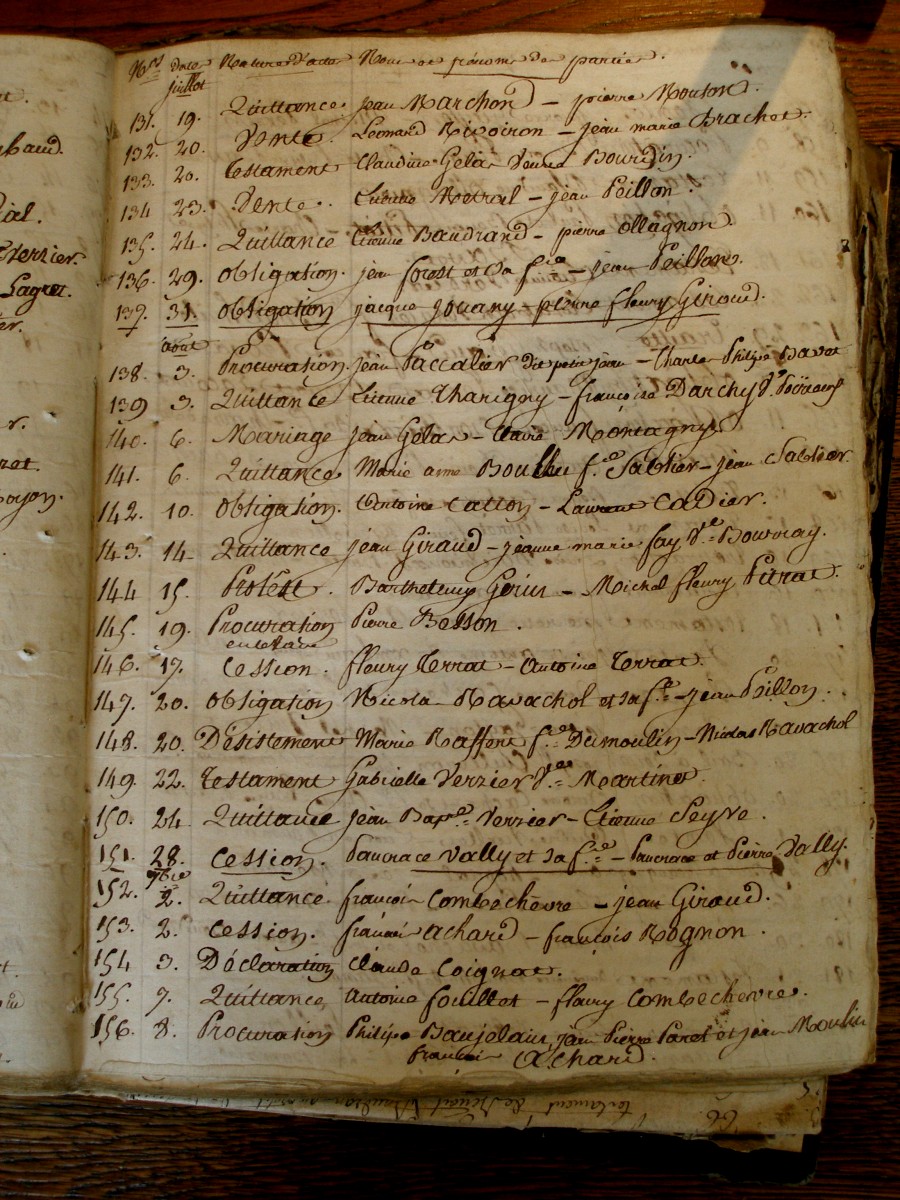 baud.
ial.
Verzier.
Lagret.
N.os Date Nature d'actes Noms et prénoms des parties.
juillet
131. 19. Quittance. jean Marchon – pierre Mouton.
132. 20. Vente. Leonard Rivoiron – jean marie Brachet.
133. 20. testament Claudine Gelas Veuve Bourdin.
134 23. Vente. Etienne Metral – jean Peillon.
135. 24. Quittance Etienne Baudrand – pierre Ollagnon.
136. 29. Obligation. jean forest et sa f.e – jean Peillon.
137. 31. Obligation jacque jouany – pierre fleury Giroud.
août
138. 3. Procuration. jean Paccalier dit petit jean – Charles Philipe Bavet
139 3. Quittance Etienne Tharigny – françoise Darchy V.e
140. 6. Mariage jean Gelas – Claire Montagny
141. 6. Quittance Marie anne Boulleu f.e Sablier – jean Sablier.
142. 10. Obligation. Antoine Catton – Laurent Cadier.
143. 14 Quittance jean Giraud – jeanne marie fay V.e Bournay.
144 15. Protêst. Barthelemy Gerin – Michel fleury Pitrat.
145. 19. Procuration Pierre Besson.
146. 17. Cession. fleury Terrat – Antoine Terrat.
147. 20. Obligation Nicolas Ravachol et sa f.e – jean Peillon.
148. 20. Désistement Marie Raffort f.e Dumoulin – Nicolas Ravachol
149. 22. testament Gabrielle Verzier V.e Martinet.
150. 24 Quittance jean Bap.te Verzier – Etienne Seyve.
151. 28. Cession. Pancrace Vally et sa f.e – Pancrace et Pierre Vally.
7bre
152. 2. Quittance. françois Combechevre – jean Giraud.
153. 2. Cession. françois achard – françois Rognon.
154 3. Déclaration Claude Coignat.
155. 7. Quittance Antoine fouillet – fleury Combechevre.
156. 8. Procuration Philipe Baujelain, jean Pierre Paret et jean Moulin
francois Achard.
testament de Benoit